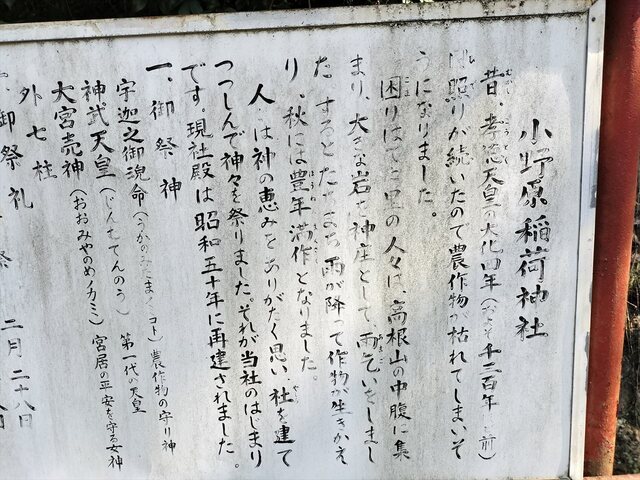 小野原稲荷神社
昔、孝徳天皇の大化四年(およそ千三百年前)
は照りが続いたので農作物が枯れてしまいそ
うになりました。
困りはてた里の人々は、高根山の中腹に集
まり、大きな岩を神座として雨乞いをしまし
た。するとたちまち雨が降って作物が生きかえ
り、秋には豊年満作となりました。
人々は神の恵みをありがたく思い社を建て
つつしんで神々を祭りました。それが当社のはじまり
です。現社殿は昭和五十年に再建されました。
一、御祭神
宇迦之御魂命(うかのみたまノミコト) 農作物の守り神
神武天皇(じんむてんのう) 第一代の天皇
大宮売神(おおみやのめノカミ) 宮居の平安を守る女神
外七柱
御祭礼
祭 二月二十八日